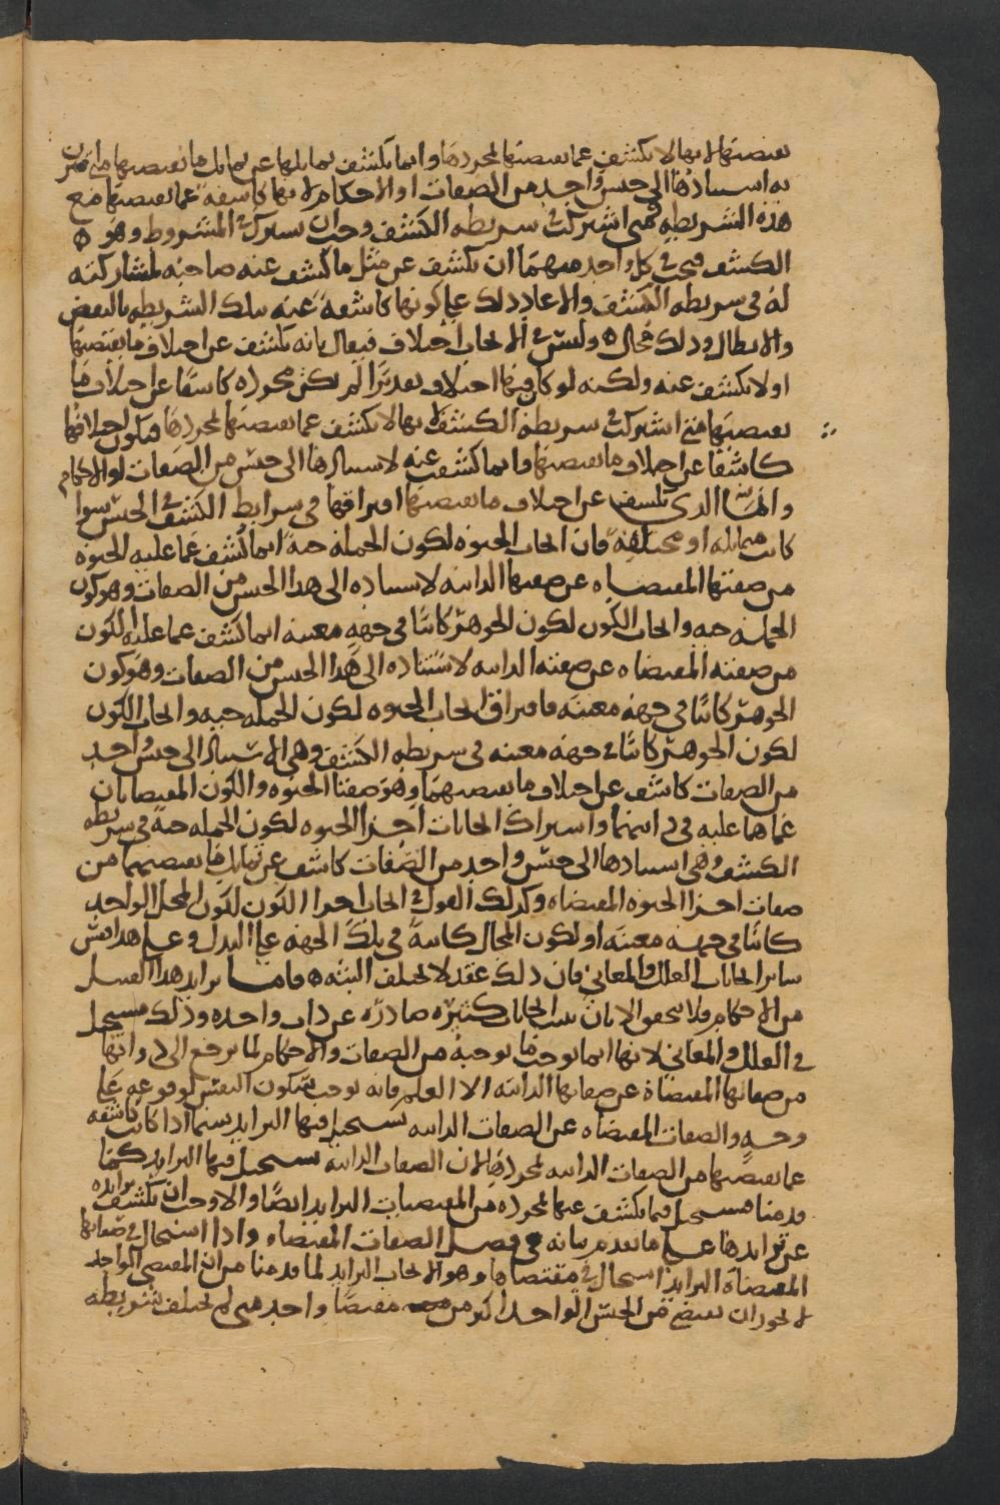 يقتضيها لانها لا يكشف عما يقتضيها لمجردها وانما يكشف تماثلها عن تماثل ما يقتضيها متى
به اسنادها الى جنس واحد من الصفات او الاحكام لانها كاشفة عما يقتضيها مع
هذه الشريطة فمتى اشتركت في شريطة الكشف وجب ان يشترك في المشروط وهو
الكشف فيجب في كل واحد منهما ان يكشف عن مثل ما كشف عنه صاحبه لمشاركته
له في شريطة الكشف والا عاد ذلك على كونها كاشفة عنه بتلك الشريطة بالنقض
والابطال وذلك محال وليس في الايجاب اختلاف فيقال بانه يكشف عن اختلاف ما يقتضيها
او لا يكشف عنه ولكنه لو كان فيها اختلاف تقديرا لم يكن بمجرده كاشفا عن اختلاف ما
يقتضيها متى اشتركت في شريطة الكشف لانها لا يكشف عما يقتضيها لمجردها فيكون اختلافها
كاشفا عن اختلاف ما يقتضيها وانما كشفت عنه لاسنادها الى جنس من الصفات او الاحكام
والذي يكشف عن اختلاف ما يقتضيها افتراقها في شرايط الكشف في الجنس سوا
كانت متماثلة او مختلفة فان ايجاب الحيوه لكون الجملة حية انما كشف عما عليه الحيوه
من صفتها المقتضاه عن صفتها الذاتيه لاسناده الى هذا الجنس من الصفات وهو كون
الجملة حيه وايجاب الكون لكون الجوهر كائنا في جهه معينة انما كشف عما عليه الكون
من صفته المقتضاه عن صفته الذاتيه لاستناده الى هذا الجنس من الصفات وهو كون
الجوهر كائنا في جهه معينه فافتراق ايجاب الحيوه لكون الجملة حيه وايجاب الكون
لكون الجوهر كائنا في جهه معينه في شريطه الكشف وهي الاسناد الى جنس واحد
من الصفات كاشف عن اختلاف ما يقتضيهما وهو صفتا الحيوه والكون المقتضاتان
عما هما عليه في ذاتيهما واشتراك ايجابات اجزا الحيوه لكون الجملة حية في شريطه
الكشف وهي اسنادها الى جنس واحد من الصفات كاشف عن تماثل ما يقتضيها من
صفات اجزا الحيوه المقتضاه وكذلك القول في ايجاب اجزا الكون لكون المحل الواحد
كائنا في جهة معينة او لكون المحال كائنة في تلك الجهه على البدل وعلى هذا فقس
ساير ايجابات العلل والمعاني فان ذلك عقد لا يختلف البته فاما تزايد هذا القبيل
من الاحكام فلا يتحقق الا بان تثبت ايجابات كثيره صادرة عن ذات واحده وذلك مستحيل
في العلل والمعاني لانها انما توجب ما توجبه من الصفات والاحكام لما يرجع الى ذواتها
من صفاتها المقتضاة عن صفاتها الذاتيه الا العلم فانه يوجب سكون النفس لوقوعه على
وجه والصفات المقتضاه عن الصفات الذاتيه يستحيل فيها التزايد سيما اذا كانت كاشفه
عما يقتضيها من الصفات الذاتيه لمجردها لان الصفات الذاتية يستحيل فيها التزايد كما
قدمنا فيستحيل فيما يكشف عنها لمجرده من المقتضيات التزايد ايضا والا وجب ان يكشف تزايده
عن تزايدها على ما تقدم بيانه في فصل الصفات المقتضاه واذا استحال في صفاتها
المقتضاة التزايد استحال في مقتضاها وهو الايجاب التزايد لما قدمنا من ان المقتضي الواحد
لا يجوز ان يقتضي من الجنس الواحد اكثر من مقتضا واحد متى لم تختلف شريطه